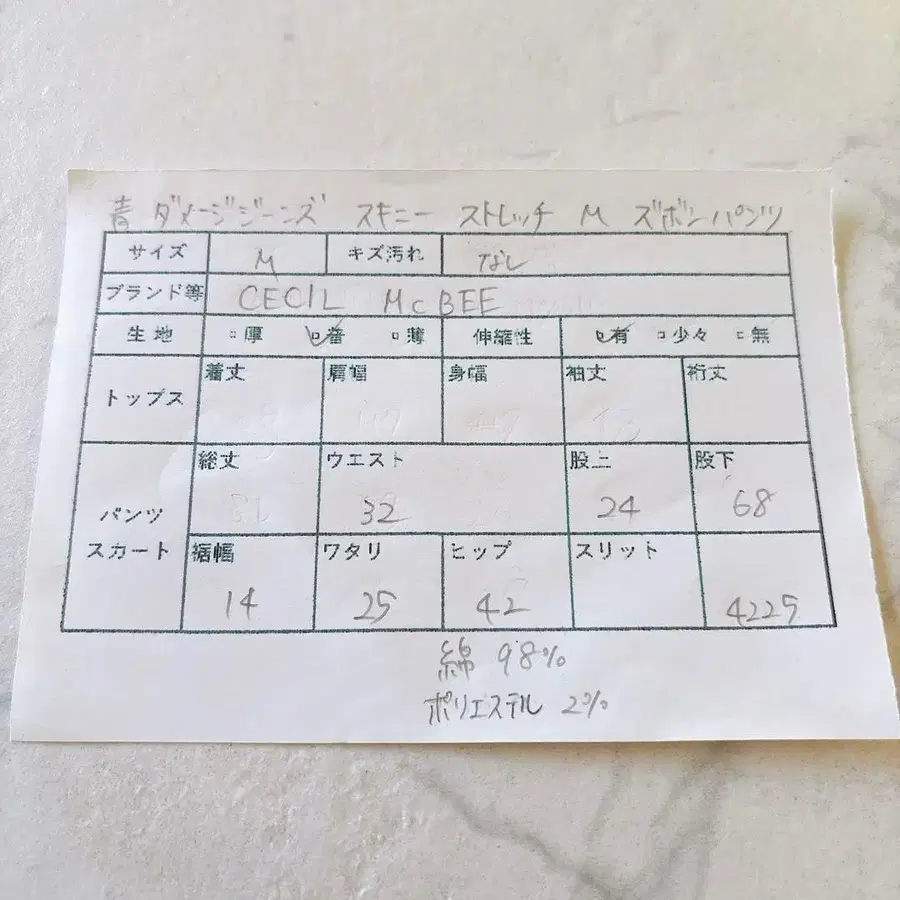 青 ダメージジーンズ スキニー ストレッチ M ズボン パンツ
サイズ M キズ汚れ なし
ブランド等 CECIL McBEE
生地 □厚 □普 □薄 伸縮性 □有 □少々 □無
トップス 着丈 肩幅 身幅 袖丈 裄丈
総丈 ウエスト 股上 股下
32 24 68
パンツ
スカート 裾幅 ワタリ ヒップ スリット
14 25 42 4225
綿 98%
ポリエステル 2%